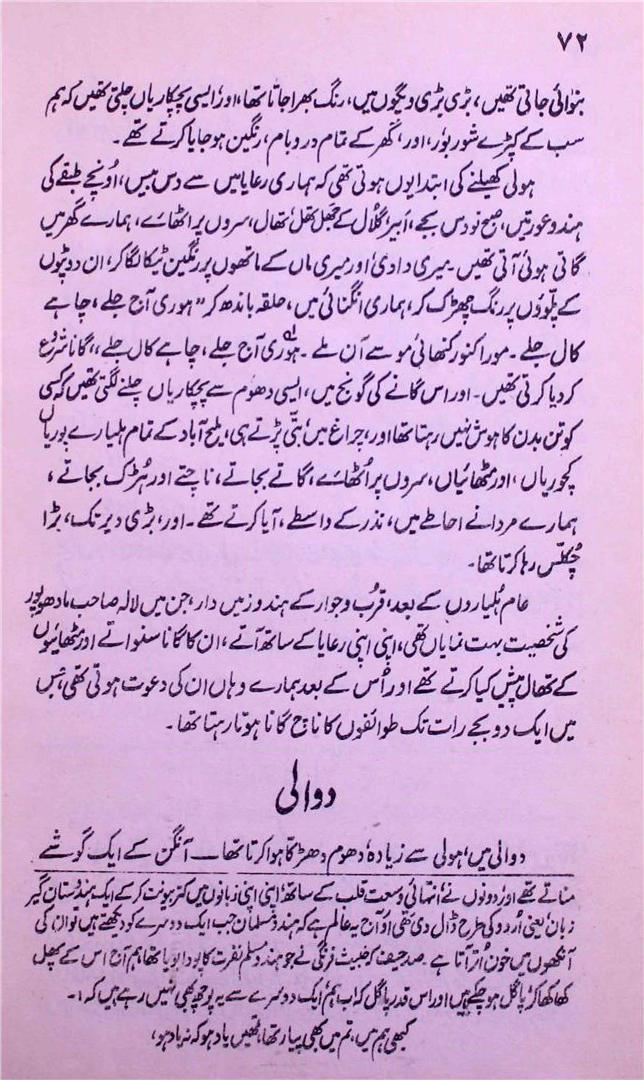 ۷۲
بنوائی جاتی تھیں، بڑی بڑی دیگچیوں میں، رنگ بھرا جاتا تھا، اور ایسی پچکاریاں چلتی تھیں کہ ہم
سب کے کپڑے شور بور، اور، گھر کے تمام در و بام، رنگین ہو جایا کرتے تھے۔
ہولی کھیلنے کی ابتدا یوں ہوتی تھی کہ ہماری رعایا میں سے دس بیس، اونچے طبقے کی
ہندو عورتیں، صبح نو دس بجے، ابیر گلال کے جھل جھل تھال، سروں پر اٹھائے، ہمارے گھر میں
گاتی ہوئی آتی تھیں۔ میری دادی، اور میری ماں کے ماتھوں پر رنگین ٹیکا لگا کر، ان دوپٹوں
کے پلوؤں پر رنگ چھڑک کر، ہماری انگنائی میں، حلقہ باندھ کر "ہوری آج جلے، چاہے
کال جلے۔ مورا کنور کنھائی مو سے آن ملے۔ ہوری آج جلے، چاہے کال جلے،، گانا شروع
کر دیا کرتی تھیں۔ اور اس گانے کی گونج میں، ایسی دھوم سے پچکاریاں چلنے لگتی تھیں کہ کسی
کو تن بدن کا ہوش نہیں رہتا تھا اور، چراغ میں بتی پڑتے ہی، ملیح آباد کے تمام ہلیارے پوریاں
کچوریاں، اور مٹھائیاں، سروں پر اُٹھائے، گاتے بجاتے، ناچتے اور ہڑک بجاتے،
ہمارے مردانے احاطے میں، نذر کے واسطے، آیا کرتے تھے۔ اور، بڑی دیر تک، بڑا
چکلّس رہا کرتا تھا۔
عام ہلیاروں کے بعد، قرب و جوار کے ہندو زمیں دار، جن میں لالہ صاحب مادھوپور
کی شخصیت بہت نمایاں تھی، اپنی اپنی رعایا کے ساتھ آتے، ان کا گانا سنواتے اور مٹھائیوں
کے تھال پیش کیا کرتے تھے اور اُس کے بعد ہمارے وہاں ان کی دعوت ہوتی تھی، جس
میں ایک دو بجے رات تک طوائفوں کا ناچ گانا ہوتا رہتا تھا۔
دوالی
دوالی میں، ہولی سے زیادہ دھوم دھڑکا ہوا کرتا تھا — آنگن کے ایک گوشے
مناتے تھے اور دونوں نے انتہائی وسعت قلب کے ساتھ، اپنی اپنی زبانوں میں کتر بیونت کر کے ایک ہندوستان گیر
زبان، یعنی اُردو کی طرح ڈال دی تھی اور آج یہ عالم ہے کہ ہندو مسلمان جب ایک دوسرے کو دیکھتے ہیں تو ان کی
آنکھوں میں خون اُتر آتا ہے۔ صد حیف کہ خبیث فرنگی نے جو ہندو مسلم نفرت کا پودا بویا تھا، ہم آج اس کے پھل
کھا کھا کر، پاگل ہو چکے ہیں اور اس قدر پاگل کہ اب ہم ایک دوسرے سے یہ پوچھ بھی نہیں رہے ہیں کہ ۱۔
کبھی ہم میں، تم میں بھی پیار تھا، تمھیں یاد ہو کہ نہ یاد ہو،